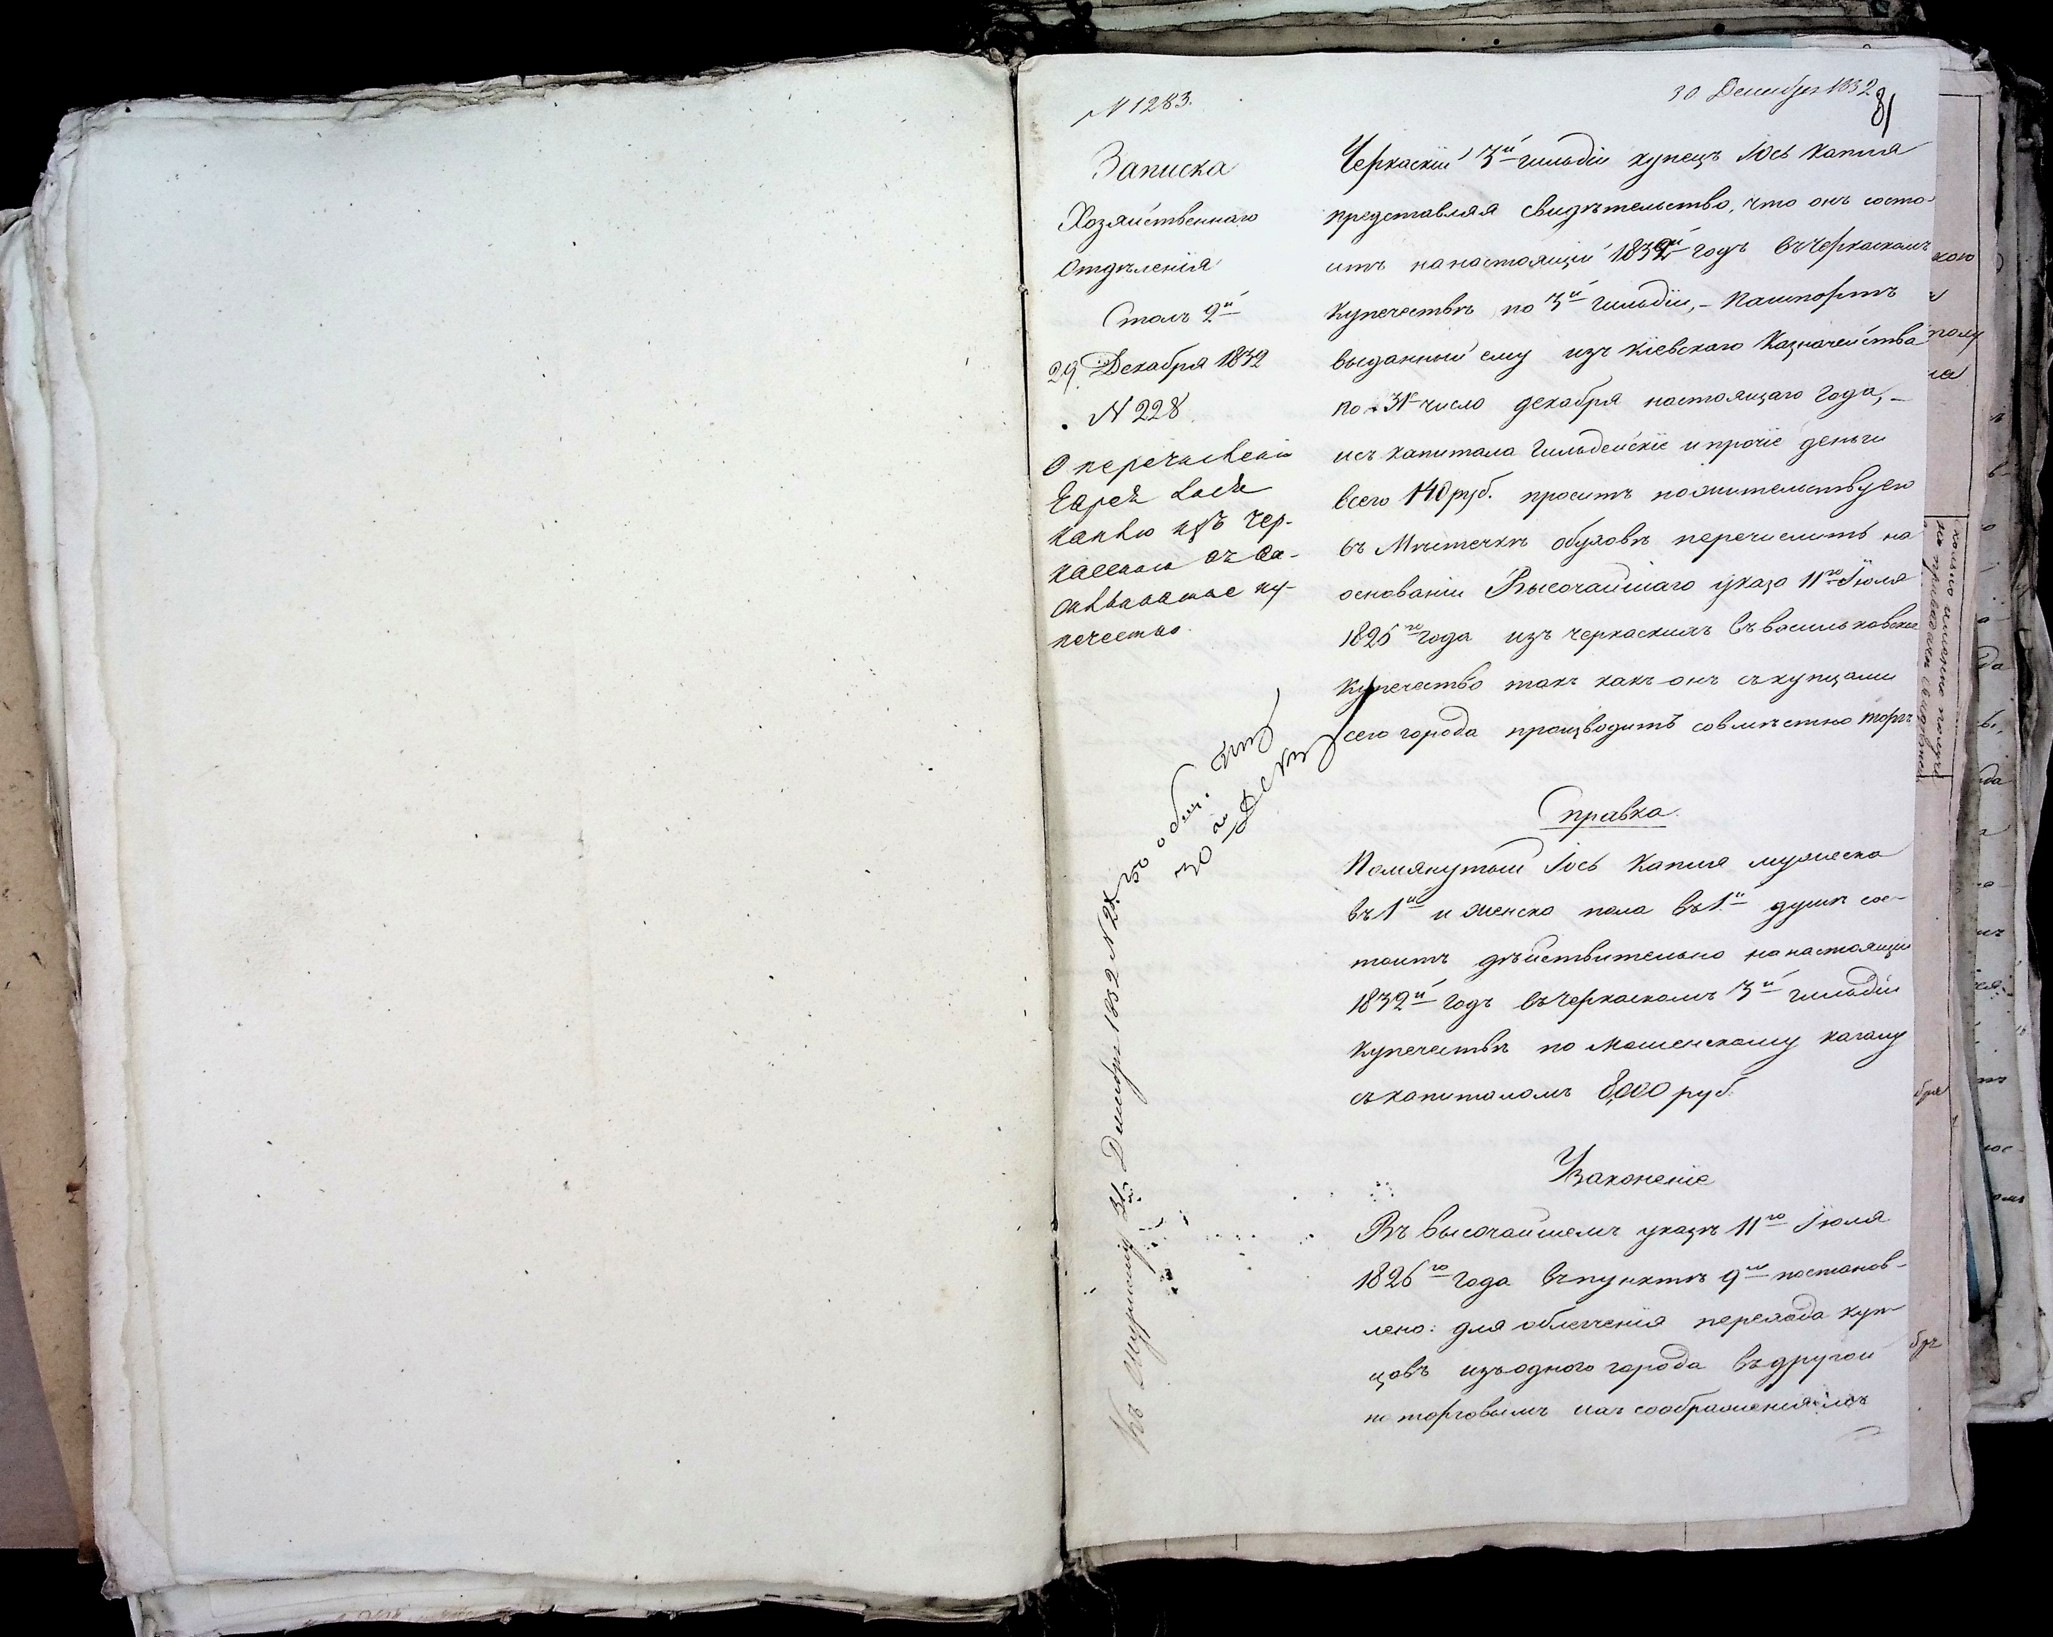 N 1283.
30 Декабря 1832
81
Записка
Хозяйственнаго
Отдѣленія
Столъ 2й
29 Декабря 1832
N 228
О перечислении
Еврея Іося
Каплю изъ Чер-
каскаго въ Ва-
сильковское ку-
печество.
30 Декб
Къ журналу 31 Декабря 1832 N 2
Черкаскій 3й гильдіи купецъ Іось Капля
представляя свидѣтельство, что онъ состо-
итъ на настоящій 1832й годъ въ Черкаскомъ
Купечествѣ по 3й гильдіи,- Пашпортъ
выданный ему изъ Кіевскаго Казначейства
по 31 число декабря настоящаго года,-
исъ капитала Гильдейскіе и прочіе деньги
всего 140 руб. проситъ пожительству его
въ Мѣстечкѣ обуховѣ перечислить на
основаніи Высочайшаго указа 11го Іюля
1826го года изъ черкаскихъ въ васильковское
Купечество такъ какъ онъ съ купцами
сего города производитъ совмѣстно торгъ
Справка
Помянутый Іось Капля мужеска
въ 1й и женска пола въ 1й душѣ сос-
тоитъ дѣйствительно на настоящій
1832й годъ въ Черкаскомъ 3й гильдіи
Купечествѣ по Мошенскому кагалу
съ капиталомъ 8,000 руб.
Узаконеніе
Въ высочайшемъ указѣ 11го Іюля
1826го года въ пунктѣ 9мъ постанов-
лено: для облегченія перехода куп-
цовъ изъ одного города въ другой
по торговымъ ихъ соображеніямъ